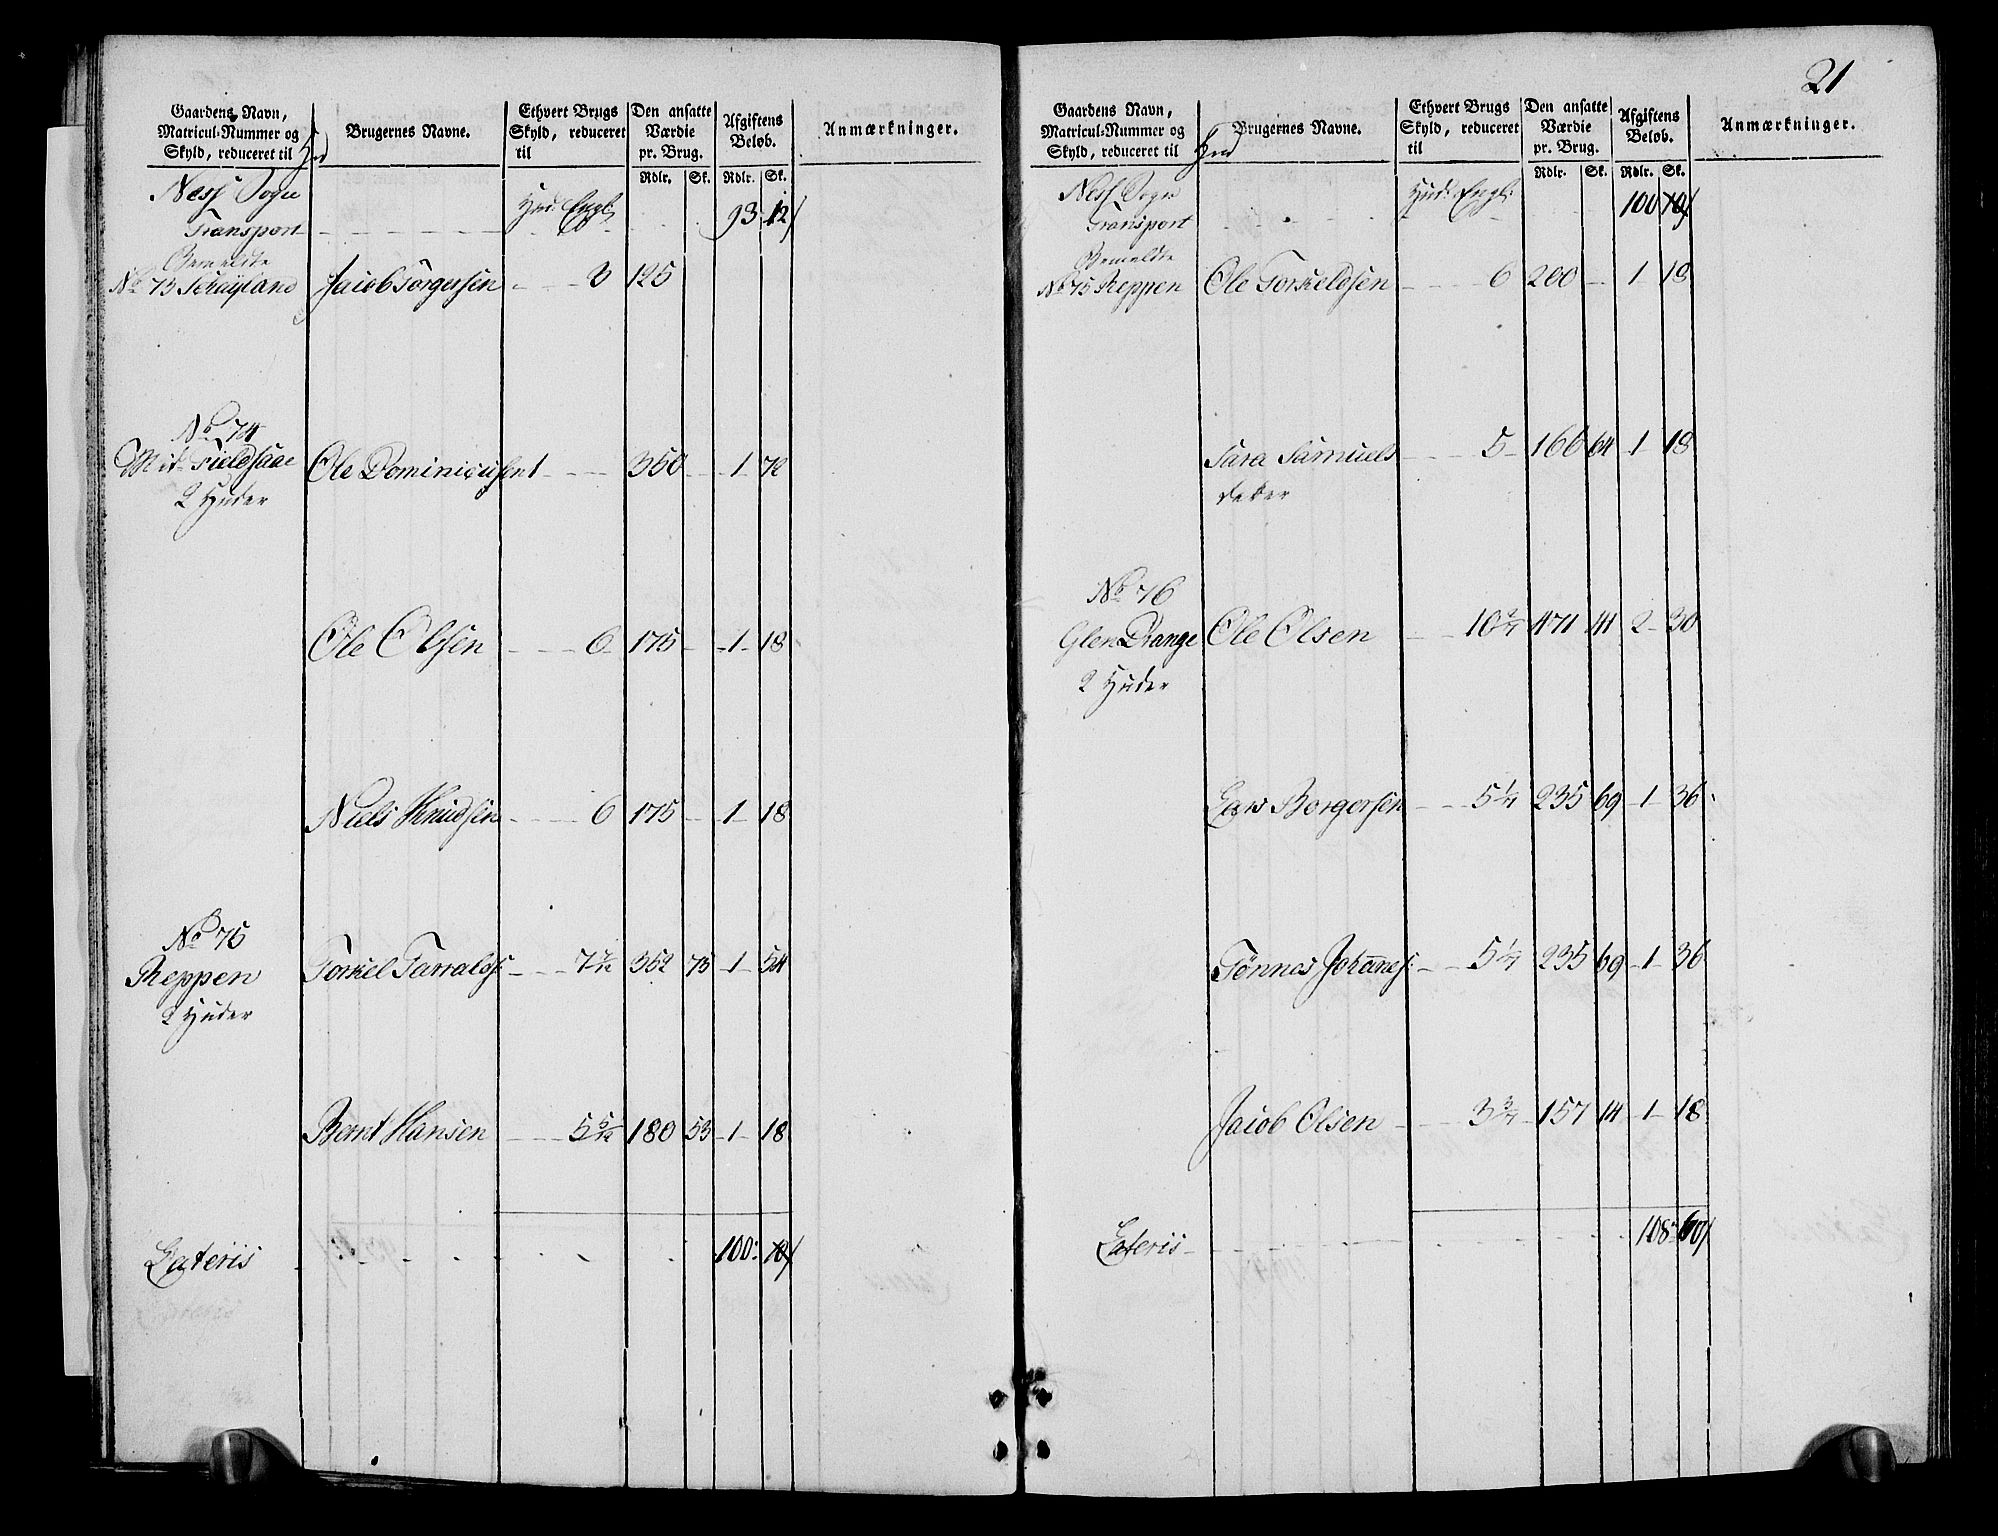 Gaardens Navn, Matricul-Nummer og Skyld, reduceret til Hud
Brugernes Navne.
Ethvert Brugs Skyld, reduceret til
Den ansatte Værdie pr. Brug.
Afgiftens Beløb.
Anmærkninger.
Rdlr. Sk. Rdlr. Sk.
Ness Sogn Hud: Engl:
Transport 93 12
Bemeldte
No 73 Jacob Torgersen 3 125
No 74
Mit-Fieldsaae Ole Dominicussen 1 350 1 72
2 Huder
Ole Olsen 6 175 1 18
Niels Knudsen 6 175 1 18
No 75
Reppen Torkel Tarralds: 7 7/12 352 73 1 54
2 Huder
Bernt Hansen 5 5/12 180 53 1 18
Lateris 100: 18
21
Gaardens Navn, Matricul-Nummer og Skyld, reduceret til Hud
Brugernes Navne.
Ethvert Brugs Skyld, reduceret til
Den ansatte Værdie pr. Brug.
Afgiftens Beløb.
Anmærkninger.
Rdlr. Sk. Rdlr. Sk.
Ness Sogn Hud: Engl:
Transport 100
Bemeldte
No 75 Reppen Ole Torkeldsen 6 200 1 18
Sara Samuels 5 166 64 1 18
datter
No 76
Glen Drange Ole Olsen 10 2/7 471 41 2 30
2 Huder
Lars Borgersen 5 1/7 235 69 1 36
Tønnes Johanes: 5 1/7 235 69 1 36
Jacob Olsen 3 3/7 157 14 1 18
Lateris 108 60